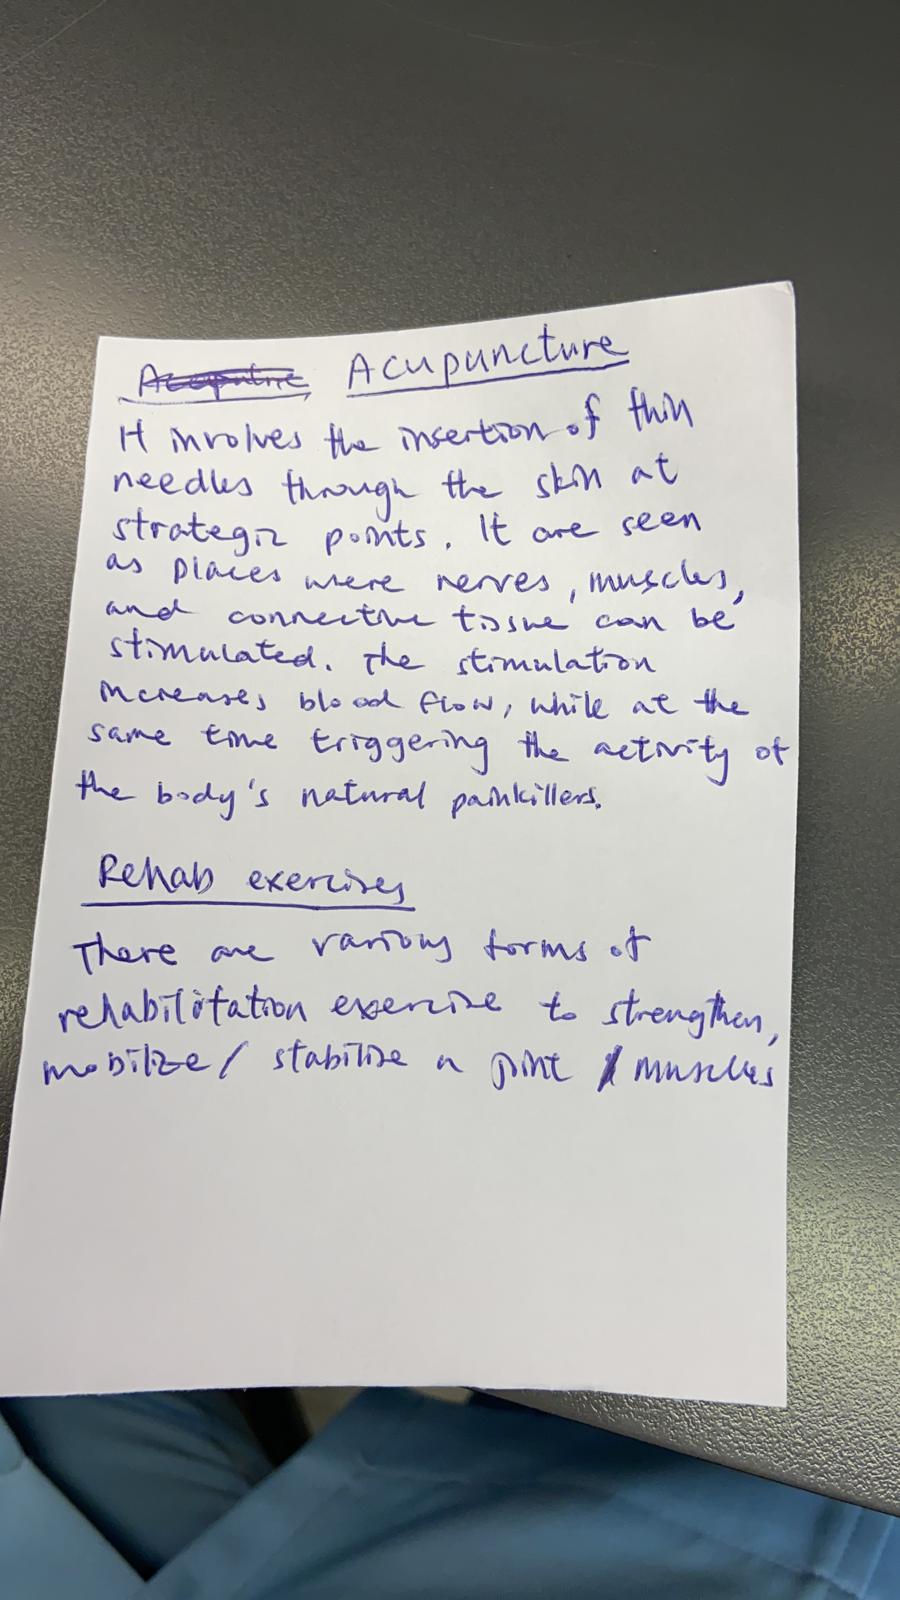 Acupuncture
It involves the insertion of thin
needles through the skin at
strategic points. It are seen
as places were nerves, muscles,
and connective tissue can be
stimulated. The stimulation
increases blood flow, while at the
same time triggering the activity of
the body's natural painkillers.
Rehab exercises
There are various forms of
rehabilitation exercise to strengthen,
mobilize / stabilise a joint / muscles